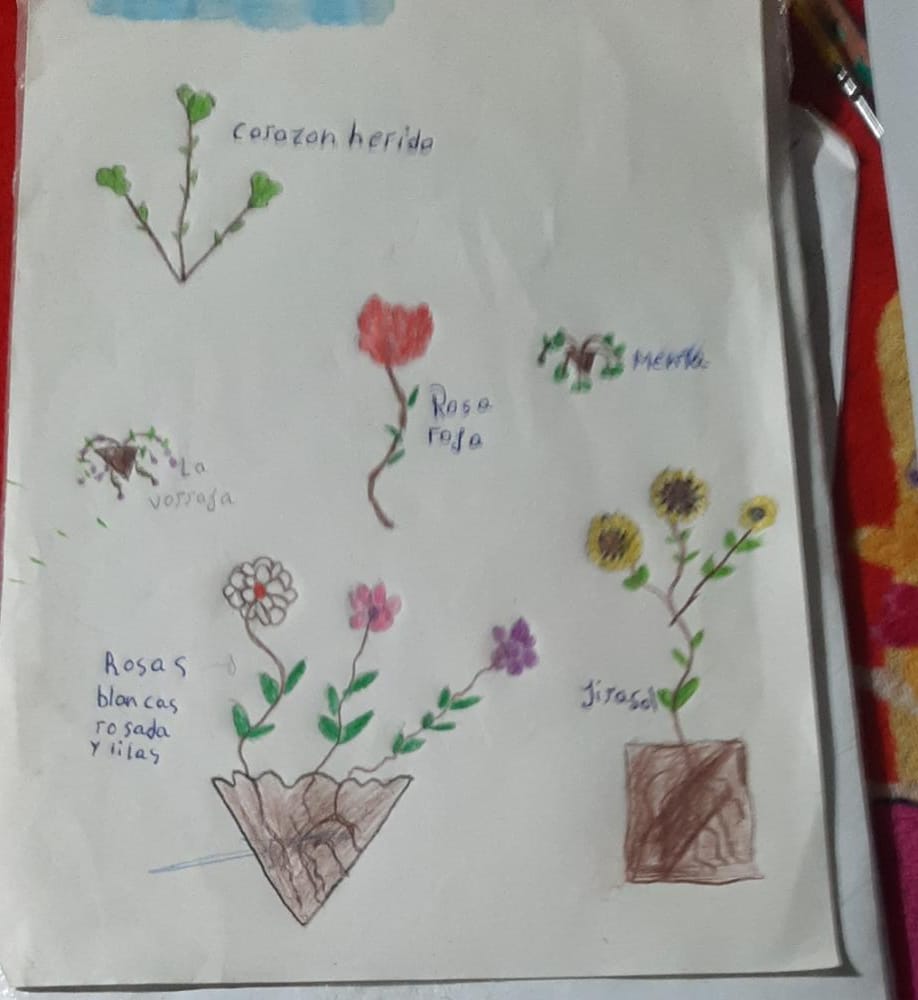 corazon herido
Rosa
roja
Menta
La
vorraja
Rosas
blancas
rosada
y lilas
Jirasol